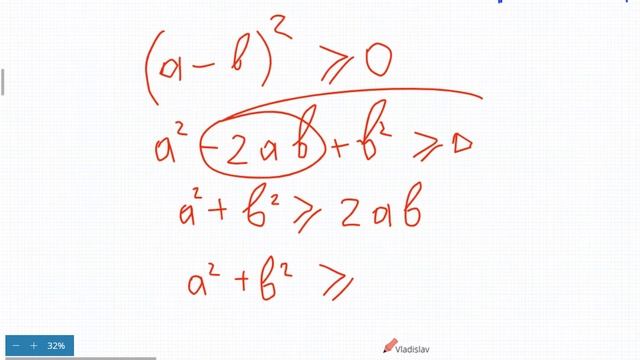 (a - b)² ⩾ 0
a² - 2ab + b² ⩾ 0
a² + b² ⩾ 2ab
a² + b² ⩾
− + 32%
Vladislav